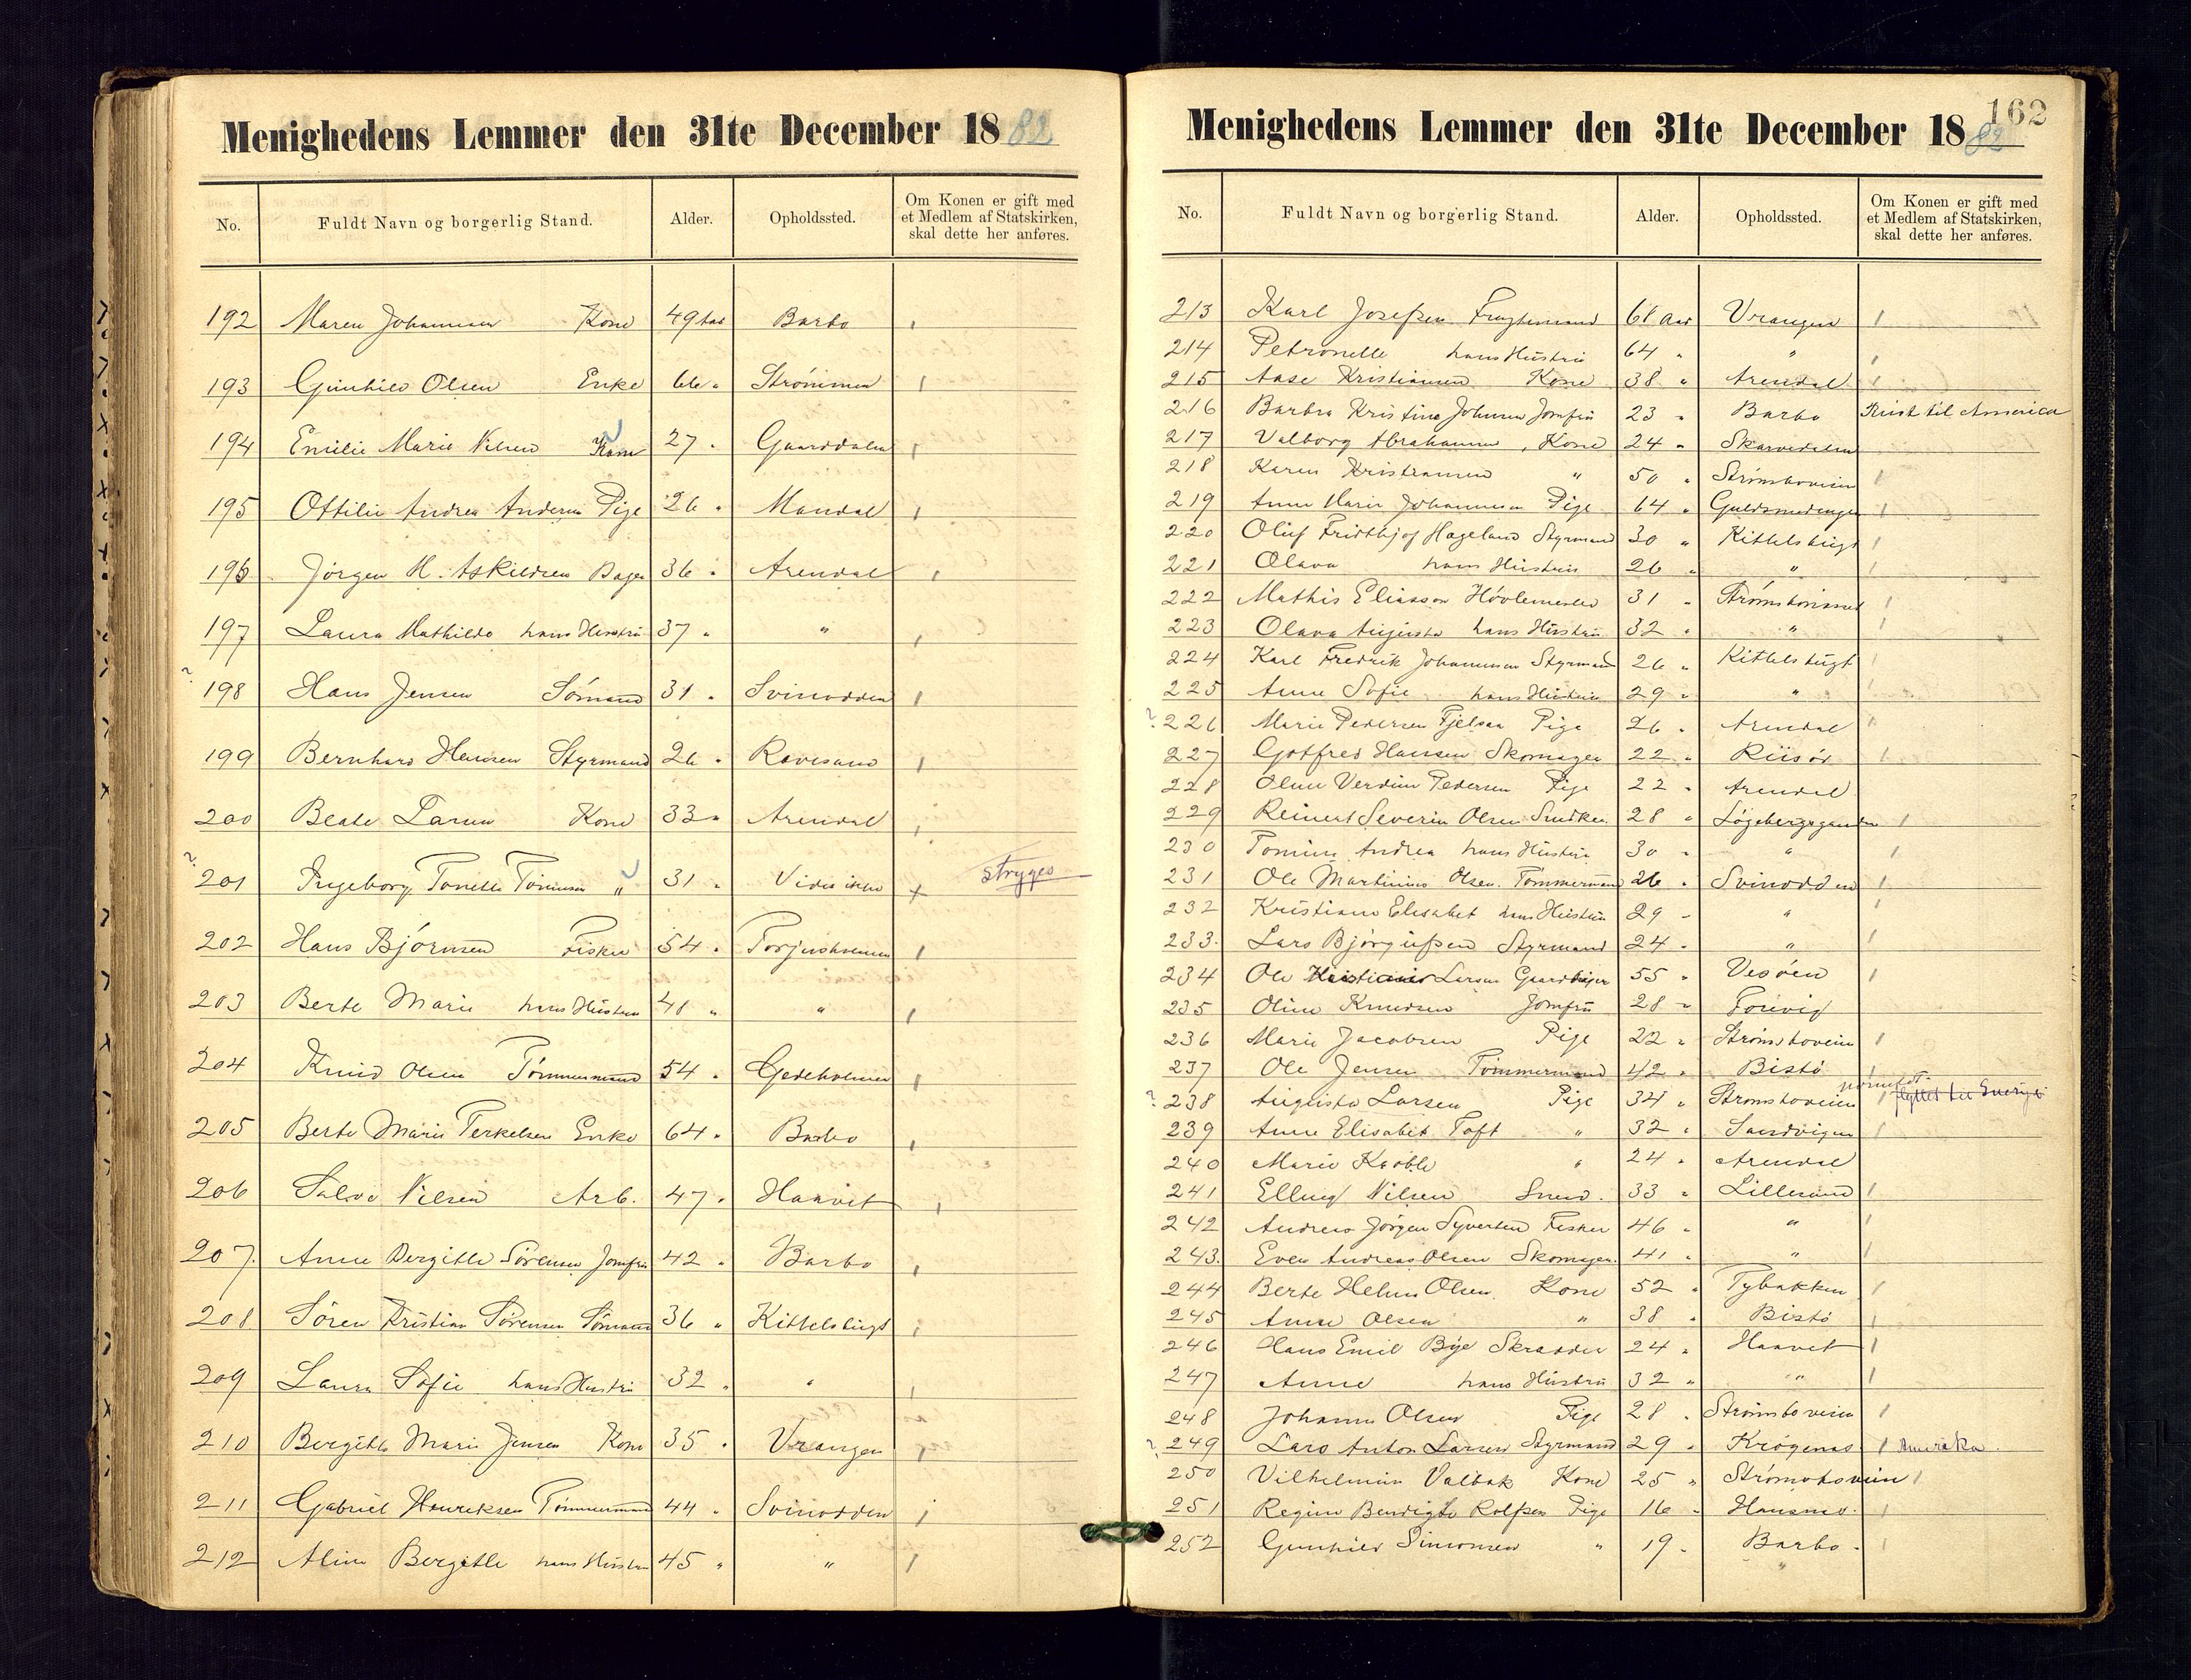 Menighedens Lemmer den 31te December 1882
No. Fuldt Navn og borgerlig Stand. Alder. Opholdssted. Om Konen er gift med et Medlem af Statskirken, skal dette her anføres.
192 Maren Johannesen Kone 49 Aar Barbo
193 Gunhild Olsen Enke 66 " Strömmen
194 Emilie Marie Nilsen Kone 27 " Gaarddalen
195 Ottilie Andrea Andersen Pige 26 " Mandal
196 Jörgen H. Askildsen Bager 36 " Arendal
197 Laura Mathilde hans Hustru 37 " "
? 198 Hans Jensen Sömand 31 " Svinodden
199 Bernhard Hansen Styrmand 26 " Revesand
200 Beate Larsen Kone 33 " Arendal
? 201 Ingeborg Tonette Tönnesen " 31 " Vides ikke + stryges
202 Hans Björnsen Fisker 54 " Torjusholmen
203 Berte Marie hans Hustru 41 " "
204 Knud Olsen Tömmermand 54 " Gjedeholmen
205 Berte Marie Terkelsen Enke 64 " Barbo
206 Salve Nilsen Arb. 47 " Haavet
207. Anne Bergitte Sörensen Jomfru 42 " Barbo
208 Sören Kristian Sörensen Sömand 36 " Kittelsbugt
209 Laura Sofie hans Hustru 32 " "
210 Bergitte Marie Jensen Kone 35 " Vrangen
211 Gabriel Henriksen Tömmermand 44 " Svinodden
212 Aline Bergitte hans Hustru 45 " "
162
Menighedens Lemmer den 31te December 1882
No. Fuldt Navn og borgerlig Stand. Alder. Opholdssted. Om Konen er gift med et Medlem af Statskirken, skal dette her anføres.
213 Karl Josefsen 61 Aar Vrangen
214 Petronelle hans Hustru 64 " "
215 Aase Kristiansen Kone 38 " Arendal
216 Barbra Kristine Johnsen Jomfru 23 " Barbo Reist til America
217 Valborg Abrahamsen, Kone 24 " Skarvedalen
218 Karen Kristiansen " 50 " Strömsboveien
219 Anne Marie Johannesen Pige 64 " Guldsmedengen
220 Oluf Fridthjof Hageland Styrmand 30 " Kittelsbugt
221 Olava hans Hustru 26 " "
222 Mathis Eliasson Hövlemester 31 " Strömsboveien
223 Olava Augusta hans Hustru 32 " "
224 Karl Fredrik Johannesen Styrmand 26 " Kittelsbugt
225 Anne Sofie hans Hustru 29 " "
? 226 Marie Pedersen Fjelsaa Pige 26 " Arendal
227 Gotfred Hansen Skomager 22 " Riisör
228 Oline Verdine Pedersen Pige 22 " Arendal
229 Reinert Severin Olsen Snedker 28 "
230 Tomine Andrea hans Hustru 30 " "
231 Ole Martinius Olsen. Tömmermand 26 " Svinodden
232 Kristiane Elisabet hans Hustru 29 " "
233. Lars Björgufsen Styrmand 24 " "
234 Ole Kristian Larsen Gaardbruger 55 " Vesöen
235 Oline Knudsen Jomfru 28 " Torevig
236 Marie Jacobsen Pige 22 " Strömsboveien
237 Ole Jensen Tömmermand 42 " Bistö
? 238 Augusta Larsen Pige 34 " Strömsboveien flyttet til Sverige
239 Anne Elisabet Toft " 32 " Sandvigen
240 Marie Kaable " 24 " Arendal
241 Elling Nilsen Smed. 33 " Lillesand
242 Andreas Jörgen Syvertsen Fisker 46 " "
243. Even Andreas Olsen Skomager. 41 " "
244 Berte Helene Olsen. Kone 52 " Tybakken
245 Anne Olsen " 38 " Bistö
246 Hans Emil Bye Skrædder 24 " Haavet
247 Anne hans Hustru 32 " "
248 Johanne Olsen Pige 28 " Strömsboveien
? 249 Lars Anton Larsen Styrmand 29 " Krögenes Amerika
250 Vilhelmine Valbak Kone 25 " Strömsboveien
251 Regine Bendigte Rolfsen Pige 16 "
252 Gunhild Simonsen " 19 " Barbo.
"